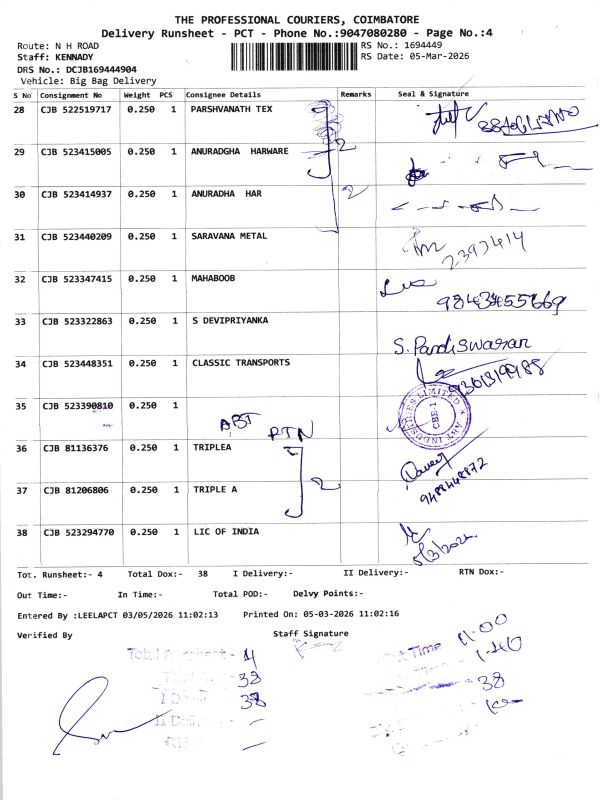 THE PROFESSIONAL COURIERS, COIMBATORE
Delivery Runsheet - PCT - Phone No.:9047080280 - Page No.:4
Route: N H ROAD RS No.: 1694449
Staff: KENNADY RS Date: 05-Mar-2026
DRS No.: DCJB169444904
Vehicle: Big Bag Delivery
S No Consignment No Weight PCS Consignee Details Remarks Seal & Signature
28 CJB 522519717 0.250 1 PARSHVANATH TEX
29 CJB 523415005 0.250 1 ANURADGHA HARWARE 2
30 CJB 523414937 0.250 1 ANURADHA HAR 2
31 CJB 523440209 0.250 1 SARAVANA METAL
2393414
32 CJB 523347415 0.250 1 MAHABOOB
33 CJB 523322863 0.250 1 S DEVIPRIYANKA
S. Pandiswaran
34 CJB 523448351 0.250 1 CLASSIC TRANSPORTS
35 CJB 523390810 0.250 1 CBE-1
ABT RTN
36 CJB 81136376 0.250 1 TRIPLEA
37 CJB 81206806 0.250 1 TRIPLE A 2 9488448872
38 CJB 523294770 0.250 1 LIC OF INDIA
Tot. Runsheet:- 4 Total Dox:- 38 I Delivery:- II Delivery:- RTN Dox:-
Out Time:- In Time:- Total POD:- Delvy Points:-
Entered By :LEELAPCT 03/05/2026 11:02:13 Printed On: 05-03-2026 11:02:16
Verified By Staff Signature
4 Out Time 11.00
38 1.40
38 38